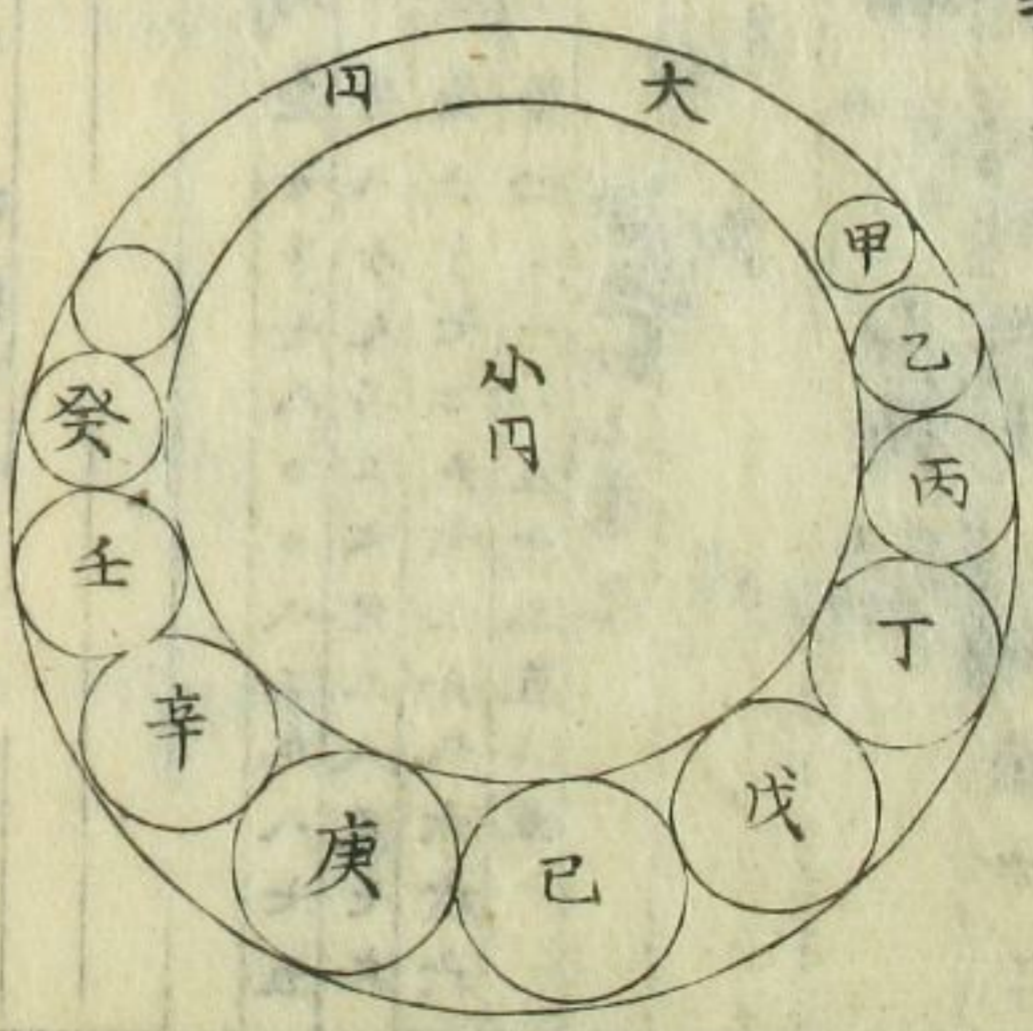 大円
小円
甲
乙
丙
丁
戊
己
庚
辛
壬
癸